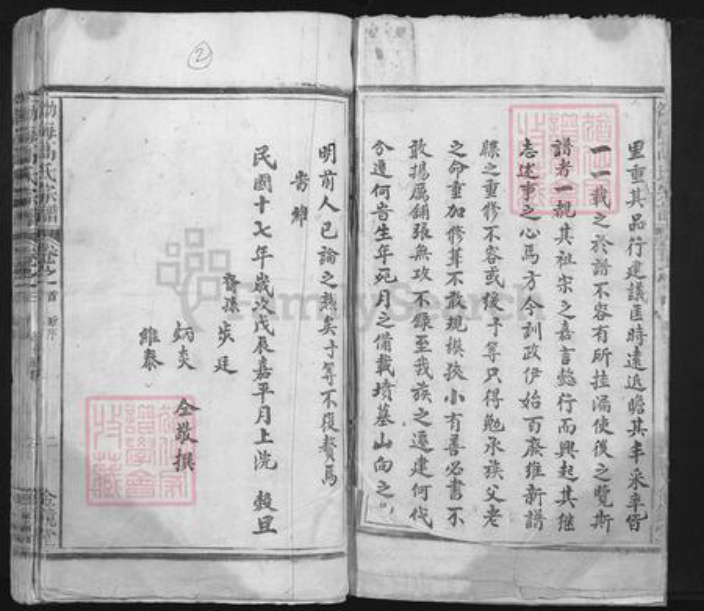 里重其品行建議匡時遠近瞻其丰采率皆
一一載之於譜不容有所挂漏使後之覽斯
譜者一覩其祖宗之嘉言懿行而興起其繼
志述事之心焉方今訓政伊始百廢維新譜
牒之重修不容或緩予等只得勉承族父老
之命重加修葺不敢規模狹小有善必書不
敢揚厲鋪張無攷不錄至我族之遷建何代
分邊何昔生年死月之備載墳墓山向之
明前人已論之熟矣予等不復贅焉
嵩
民國十七年歲次戊辰嘉平月上浣 穀旦
裔孫 炎廷
炳炎 仝敬撰
維泰
渤海高氏宗譜 卷之一首
二
②
FamilySearch